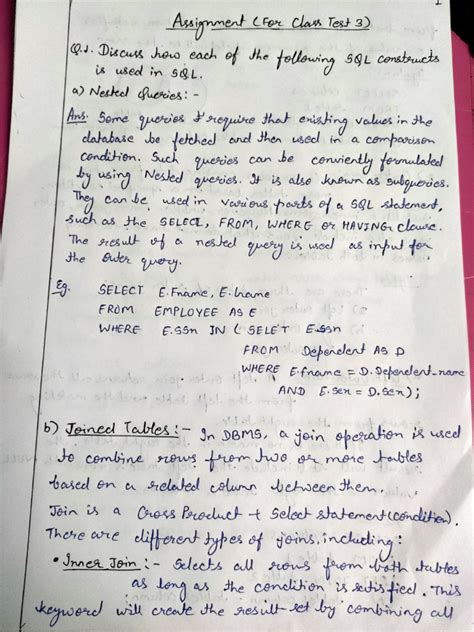 Assignment (For Class Test 3)
Q.1. Discuss how each of the following SQL constructs
is used in SQL.
a) Nested Queries :-
Ans. Some queries require that existing values in the
database be fetched and then used in a comparison
condition. Such queries can be conviently formulated
by using Nested queries. It is also known as subqueries.
They can be used in various parts of a SQL statement,
such as the SELECT, FROM, WHERE or HAVING clause.
The result of a nested query is used as input for
the outer query.
Eg. SELECT E.Fname, E.lname
FROM EMPLOYEE AS E
WHERE E.SSn IN ( SELET E.ssn
FROM Dependent AS D
WHERE E.fname = D.Dependent_name
AND E.Sex = D.Sex);
b) Joined Tables :- In DBMS, a join operation is used
to combine rows from two or more tables
based on a related column between them.
Join is a Cross Product + Select statement (condition).
There are different types of joins, including:
• Inner Join :- Selects all rows from both tables
as long as the condition is satisfied. This
keyword will create the result-set by combining all